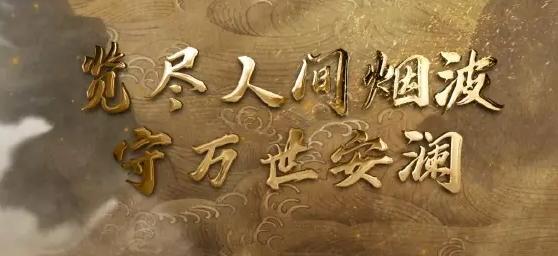 览尽人间烟波
守万世安澜